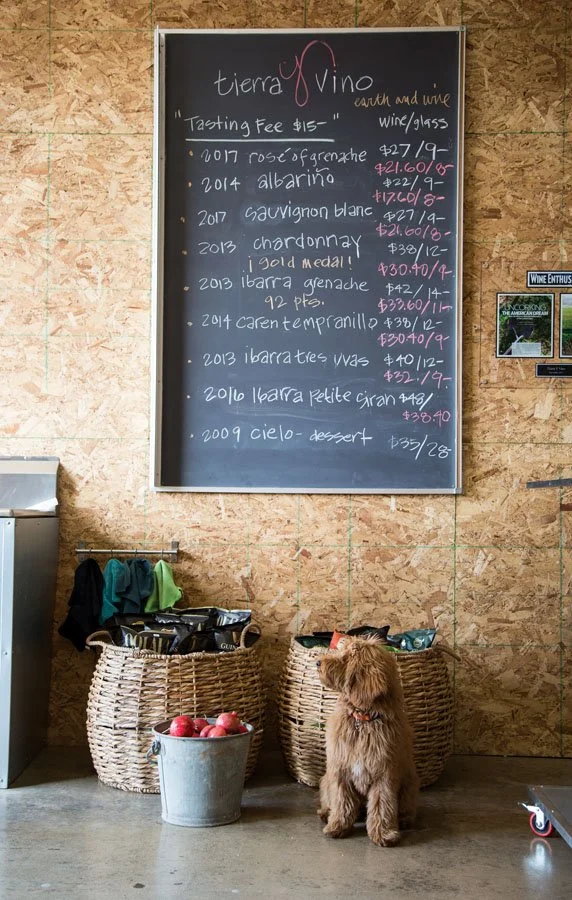 tierra y vino
earth and wine
"Tasting Fee $15-"
wine/glass
• 2017 rosé of grenache $27/9-
$21.60/8-
• 2014 albariño $22/9-
$17.60/8-
• 2017 sauvignon blanc $27/9-
$21.60/8-
• 2013 chardonnay $38/12-
¡gold medal! $30.40/9-
• 2013 ibarra grenache $42/14-
92 pts. $33.60/11-
• 2014 caren tempranillo $38/12-
$30.40/9-
• 2013 ibarra tres uvas $40/12-
$32./9-
• 2016 Ibarra petite siran $48/
$38.40
• 2009 cielo- dessert $35/28-
WINE ENTHUS
UNCORKING
THE AMERICAN DREAM